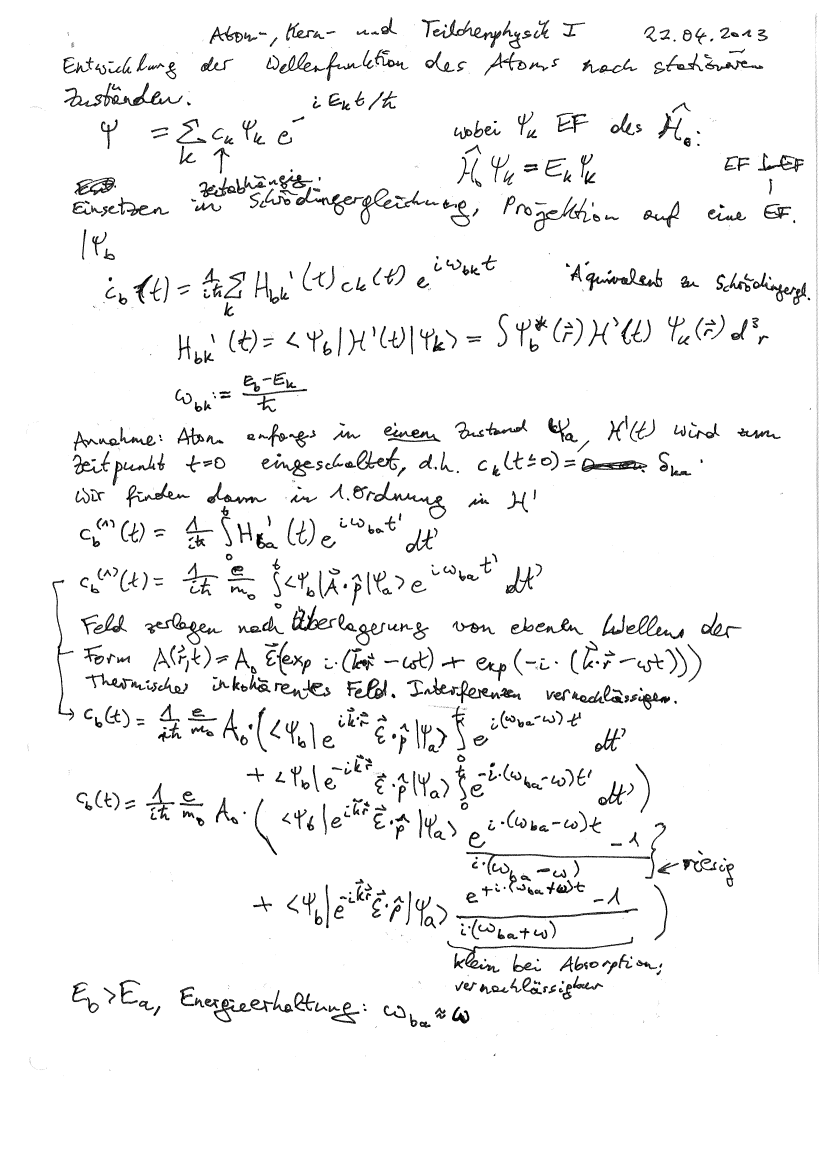 Atom-, Kern- und Teilchenphysik I 22.04.2013
Entwicklung der Wellenfunktion des Atoms nach stationären
Zuständen.
Ψ = Σ_k c_k Ψ_k e^{-iE_k t/ħ} wobei Ψ_k EF des Ĥ_0:
zeitabhängig. Ĥ_0 Ψ_k = E_k Ψ_k EF ⊥ EF
Einsetzen in Schrödingergleichung, Projektion auf eine EF.
|Ψ_b
ċ_b(t) = 1/(iħ) Σ_k H_bk'(t) c_k(t) e^{iω_bk t} Äquivalent zu Schrödingergl.
H_bk'(t) = <Ψ_b|H'(t)|Ψ_k> = ∫ Ψ_b*(r⃗) H'(t) Ψ_k(r⃗) d³r
ω_bk := (E_b-E_k)/ħ
Annahme: Atom anfangs in einem Zustand Ψ_a, H'(t) wird zum
Zeitpunkt t=0 eingeschaltet, d.h. c_k(t≤0) = δ_ka.
Wir finden dann in 1. Ordnung in H'
c_b^(1)(t) = 1/(iħ) ∫_0^t H_ba'(t) e^{iω_ba t'} dt'
c_b^(1)(t) = 1/(iħ) e/m_0 ∫_0^t <Ψ_b|A⃗·p̂|Ψ_a> e^{iω_ba t'} dt'
Feld zerlegen nach Überlagerung von ebenen Wellen der
Form A(r⃗,t) = A_0 ε⃗(exp i·(k⃗r⃗ - ωt) + exp(-i·(k⃗·r⃗ - ωt)))
Thermisches inkohärentes Feld. Interferenzen vernachlässigen.
c_b(t) = 1/(iħ) e/m_0 A_0·(<Ψ_b|e^{ik⃗r⃗} ε⃗·p̂|Ψ_a> ∫_0^t e^{i(ω_ba-ω)t'} dt'
+ <Ψ_b|e^{-ik⃗r⃗} ε⃗·p̂|Ψ_a> ∫_0^t e^{-i·(ω_ba-ω)t'} dt')
c_b(t) = 1/(iħ) e/m_0 A_0·( <Ψ_b|e^{ik⃗r⃗} ε⃗·p̂|Ψ_a> (e^{i·(ω_ba-ω)t} - 1)/(i·(ω_ba-ω)) } ← riesig
+ <Ψ_b|e^{-ik⃗r⃗} ε⃗·p̂|Ψ_a> (e^{+i·(ω_ba+ω)t} - 1)/(i·(ω_ba+ω)) )
klein bei Absorption;
vernachlässigbar
E_b > E_a, Energieerhaltung: ω_ba ≈ ω